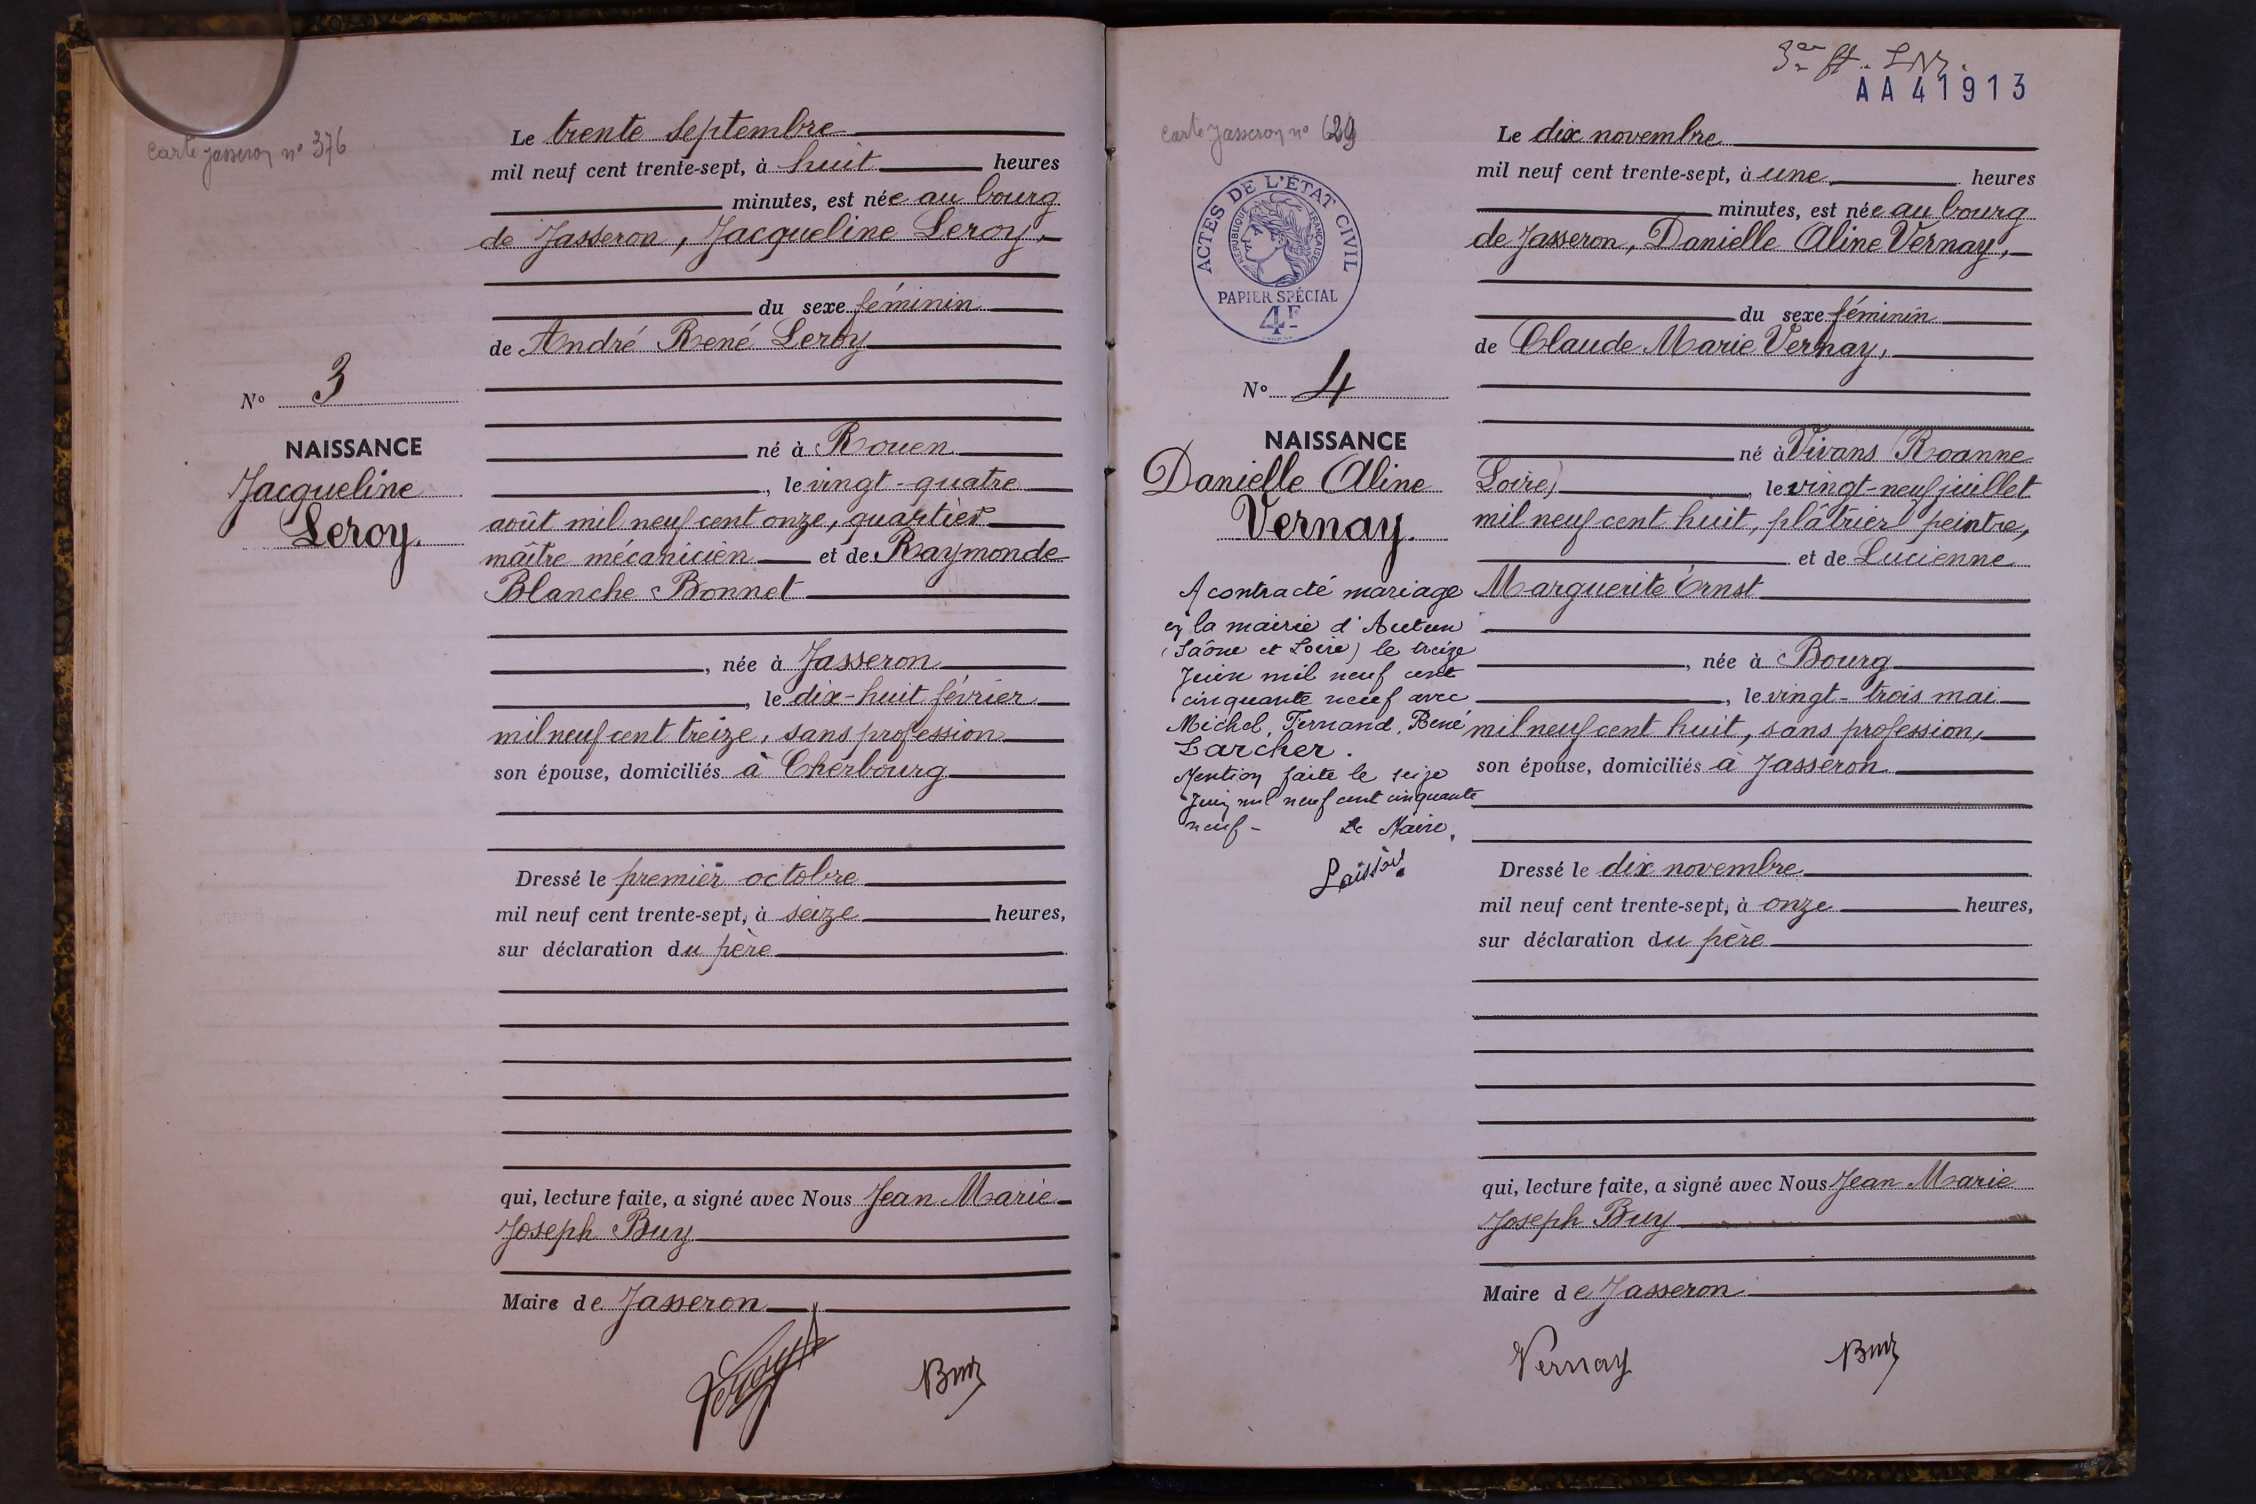 Carte Jasseron n° 376
Le trente septembre
mil neuf cent trente-sept, à huit heures
minutes, est née au bourg
de Jasseron, Jacqueline Leroy,
du sexe féminin
de André René Leroy
N° 3
NAISSANCE
Jacqueline
Leroy.
né à Rouen
, le vingt-quatre
août mil neuf cent onze, quartier
maître mécanicien et de Raymonde
Blanche Bonnet
, née à Jasseron
, le dix-huit février
mil neuf cent treize, sans profession
son épouse, domiciliés à Cherbourg
Dressé le premier octobre
mil neuf cent trente-sept, à seize heures,
sur déclaration du père
qui, lecture faite, a signé avec Nous Jean Marie
Joseph Buy
Maire de Jasseron
Leroy
Buy
AA41913
Carte Jasseron n° 629
ACTES DE L'ÉTAT CIVIL
RÉPUBLIQUE FRANÇAISE
PAPIER SPÉCIAL
4F
Le dix novembre
mil neuf cent trente-sept, à une heures
minutes, est née au bourg
de Jasseron, Danielle Aline Vernay,
du sexe féminin
de Claude Marie Vernay,
N° 4
NAISSANCE
Danielle Aline
Vernay.
A contracté mariage
en la mairie d'Autun
(Saône et Loire) le treize
Juin mil neuf cent
cinquante neuf avec
Michel, Fernand, René
Larcher.
Mention faite le seize
Juin mil neuf cent cinquante
neuf - Le Maire,
né à Vivans (Roanne
Loire) , le vingt-neuf juillet
mil neuf cent huit, plâtrier peintre,
et de Lucienne
Marguerite Ernst
, née à Bourg
, le vingt-trois mai
mil neuf cent huit, sans profession,
son épouse, domiciliés à Jasseron
Dressé le dix novembre
mil neuf cent trente-sept, à onze heures,
sur déclaration du père
qui, lecture faite, a signé avec Nous Jean Marie
Joseph Buy
Maire de Jasseron
Vernay
Buy